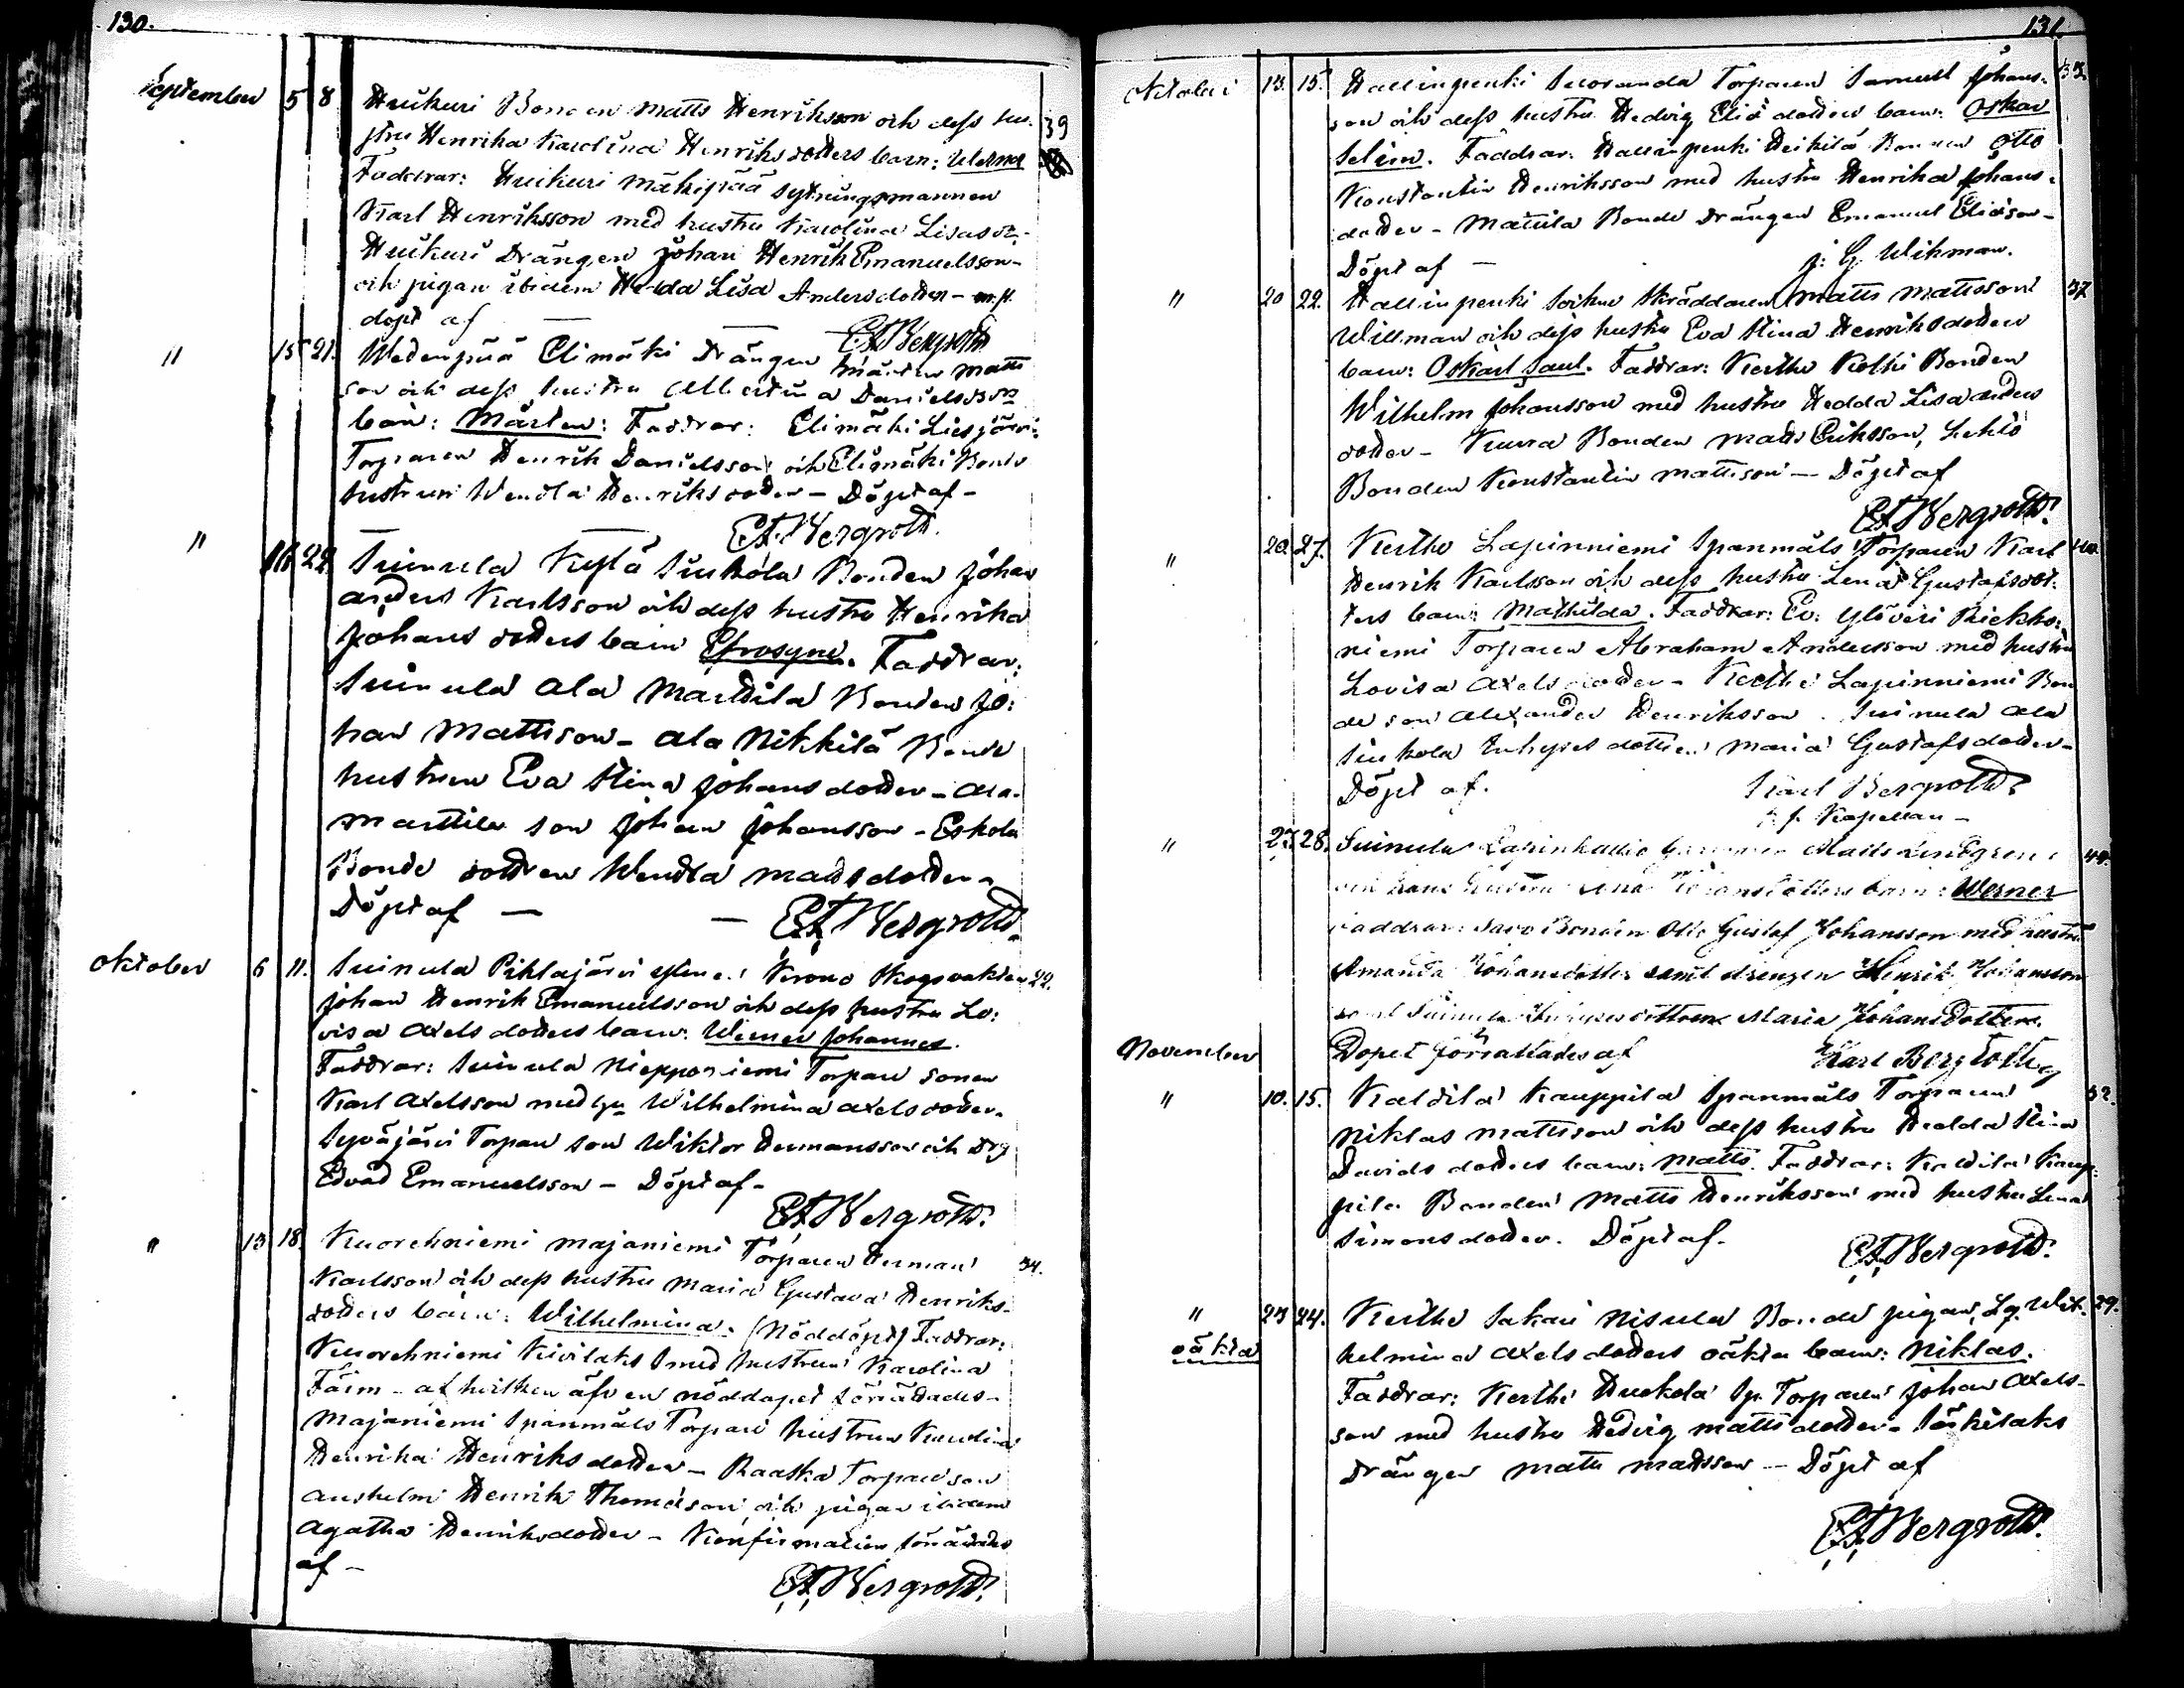 130.
September 5 8 Huikuri Bonden Matts Henriksson och dess hu- 39
stru Henrika Karolina Henriksdotters barn: Werner
Faddrar: Huikuri Mäkipää sytningsmannen
Karl Henriksson med hustru Karolina Lisasdr.-
Huikuri Drängen Johan Henrik Emanuelsson-
och pigan ibidem Hedda Lisa Andersdotter-
döpt af — — E A Bergroth.
" 15 21. Wedenpää Elimäki Drängen Mårten Matts
son och dess hustru Albertina Danielsdrs
barn: Mårten: Faddrar: Elimäki Liesjärvi-
Torparen Henrik Danielsson och Elimäki Bonde
hustrun Wendla Henriksdotter - Döpt af -
— — E A Bergroth.
" 16 22 Suinula Kylä Sinkola Bonden Johan
Anders Karlsson och dess hustru Henrika
Johansdotters barn Efrosyne. Faddrar:
Suinula Ala Marttila Bonden Jo:
han Mattsson- Ala Nikkilä Bonde
hustrun Eva Stina Johansdotter - Ala-
Marttila son Johan Johansson - Eskola
Bonde dottren Wendla Mattsdotter-
Döpt af — — E A Bergroth.
Oktober 6 11. Suinula Pihlajärvi Krono Skogsvakten 22.
Johan Henrik Emanuelsson och dess hustru Lo:
visa Axelsdotters barn: Werner Johannes.
Faddrar: Suinula Niepponiemi Torpare sonen
Karl Axelsson med Wilhelmina Axelsdotter-
Syväjärvi Torpare son Wiktor Hermansson och Drg
Edvard Emanuelsson - Döpt af -
E A Bergroth.
" 13 18. Kuorehniemi Majaniemi Torparen Herman 34.
Karlsson och dess hustru Maria Gustava Henriks-
dotters barn: Wilhelmina. (Nöddöpt) Faddrar:
Kuorehniemi Kivilaks Smed hustrun Karolina
Färm - af hvilken äfven nöddopet förrättades-
Majaniemi Spanmåls Torpare hustrun Karolina
Henrika Henriksdotter - Raaska Torpare son
Anshelm Henrik Thomasson, och pigan ibidem
Agatha Henriksdotter - Konfirmation förrättades
af - E A Bergroth.
131.
Oktober 13. 15. Hallinpenki Suoranda Torparen Samuel Johans-
son och dess hustru Hedvig Eliæ dotters barn: Oskar
Selim. Faddrar: Hallinpenki Heikilä Bonden Otto
Konstantin Henriksson med hustru Henrika Johans-
dotter - Mattila Bonde Drängen Emanuel Eliæson-
Döpt af — J: G. Wikman.
" 20 22. Hallinpenki Skräddaren Matts Mattsson 37
Willman och dess hustru Eva Stina Henriksdotters
barn: Oskar Saul. Faddrar: Kerthe Bonden
Wilhelm Johansson med hustru Hedda Lisa Anders
dotter - Kurra Bonden Matts Eriksson, Lehlö
Bonden Konstantin Mattsson — Döpt af
E A Bergroth.
" 20. 27. Kerthe Lapinniemi Spanmåls Torparen Karl 40.
Henrik Karlsson och dess hustru Lena Gustafsdot-
ters barn: Mathilda. Faddrar: Ylöveri
niemi Torparen Abraham Andersson med hustru
Lovisa Axelsdotter - Kerthe Lapinniemi Bon
de son Alexander Henriksson. Suinula Ala
Sinkola Inhyses dotter Maria Gustafsdotter-
Döpt af. Karl Bergroth
Kapellan -
" 27. 28. Suinula Matts Lindgren 44.
och hans hustru Johansdotters barn: Werner
Faddrar: Savo Bonden Otto Gustaf Johansson med hustru
Amanda Johansdotter samt drengen Henrik Johansson
samt Suinula Inhyses dottren Maria Johansdotter.
November Dopet förrättades af Karl Bergroth
" 10. 15. Kaltila Kauppila Spanmåls Torparen 32.
Niklas Mattsson och dess hustru Hedda Stina
Davidsdotters barn: Matts. Faddrar: Kaltila Kaup-
pila Bonden Matts Henriksson med hustru Lena
Simonsdotter. Döpt af. E A Bergroth.
" 23 24. Kerthe Sakari Nisula Bonde pigan, Wil- 29.
oäkta helmina Axelsdotters oäkta barn: Niklas.
Faddrar: Kerthe Huokola Sp. Torparen Johan Axels-
son med hustru Hedvig Mattsdotter - Särkilaks
Drängen Matts Mattsson — Döpt af
E A Bergroth.